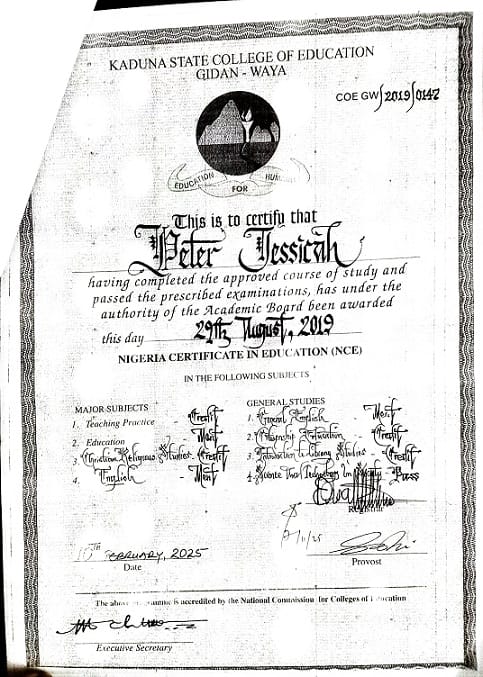 KADUNA STATE COLLEGE OF EDUCATION
GIDAN - WAYA
COE GW/2019/0147
EDUCATION
FOR
This is to certify that
Peter Jessicah
having completed the approved course of study and
passed the prescribed examinations, has under the
authority of the Academic Board been awarded
this day 29th August, 2019
NIGERIA CERTIFICATE IN EDUCATION (NCE)
IN THE FOLLOWING SUBJECTS
MAJOR SUBJECTS
1. Teaching Practice - Credit
2. Education - Merit
3. Christian Religious Studies - Credit
4. English - Merit
GENERAL STUDIES
1. General English - Merit
2. Citizenship Education - Credit
3. Introduction to Library Studies - Credit
4. Science And Technology In Society - Pass
Registrar
10TH FEBRUARY, 2025
Date
Provost
The above programme is accredited by the National Commission for Colleges of Education
Executive Secretary